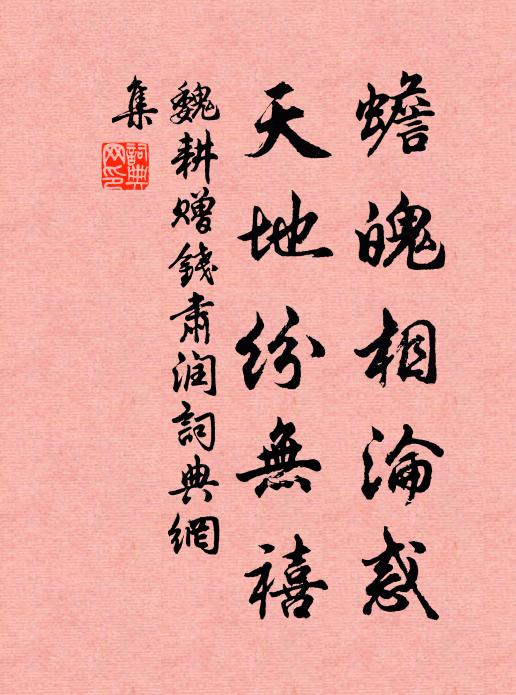 蟾魄相淪惑
天地紛無禧
魏耕赠錢肅润詞典網
集
詞典
网印